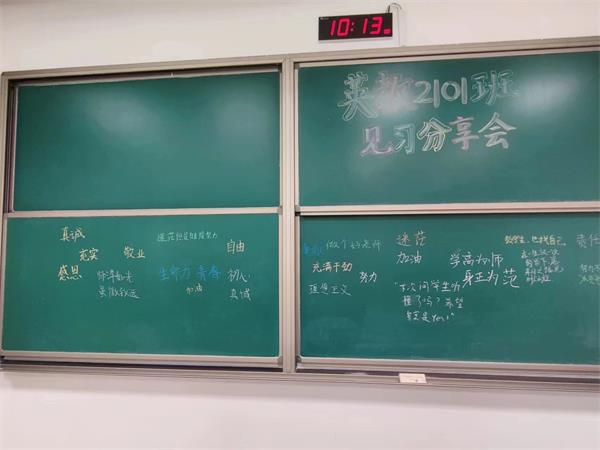 10:13
英教2101班
见习分享会
真诚
迷茫但是继续努力
充实
敬业
自由
感恩
生命力 青春
初心
加油
真诚
做个好老师
迷茫
责任
充满干劲
加油
学高为师
努力
身正为范
理想主义
"下次问学生听
懂了吗？希望
都是Yes！"